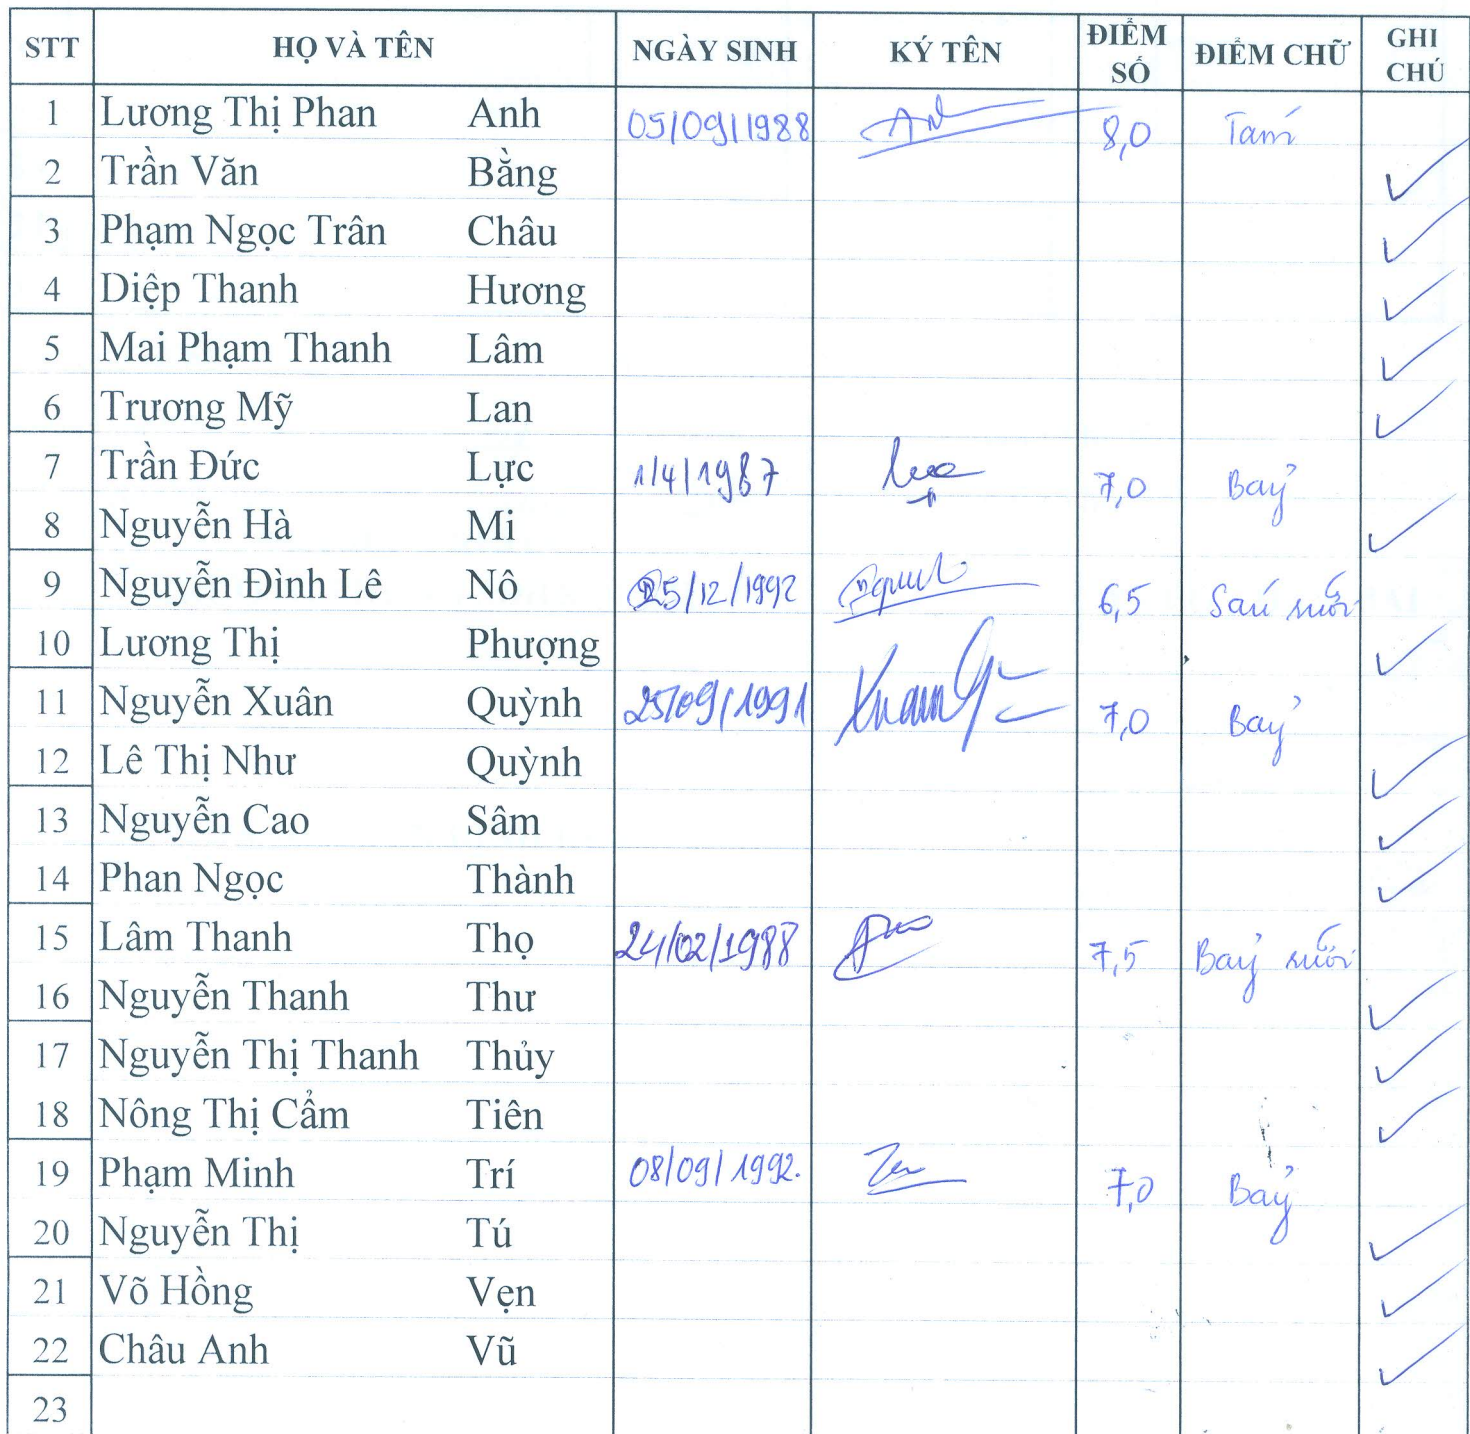 STT HỌ VÀ TÊN NGÀY SINH KÝ TÊN ĐIỂM SỐ ĐIỂM CHỮ GHI CHÚ
1 Lương Thị Phan Anh 05/09/1988 Anh 8,0 Tám
2 Trần Văn Bằng ✓
3 Phạm Ngọc Trân Châu ✓
4 Diệp Thanh Hương ✓
5 Mai Phạm Thanh Lâm ✓
6 Trương Mỹ Lan ✓
7 Trần Đức Lực 1/4/1987 lực 7,0 Bảy
8 Nguyễn Hà Mi ✓
9 Nguyễn Đình Lê Nô 25/12/1992 6,5 Sáu rưỡi
10 Lương Thị Phượng ✓
11 Nguyễn Xuân Quỳnh 25/09/1991 XuanQ 7,0 Bảy
12 Lê Thị Như Quỳnh ✓
13 Nguyễn Cao Sâm ✓
14 Phan Ngọc Thành ✓
15 Lâm Thanh Thọ 24/02/1988 7,5 Bảy rưỡi
16 Nguyễn Thanh Thư ✓
17 Nguyễn Thị Thanh Thủy ✓
18 Nông Thị Cẩm Tiên ✓
19 Phạm Minh Trí 08/09/1992. 7,0 Bảy
20 Nguyễn Thị Tú ✓
21 Võ Hồng Vẹn ✓
22 Châu Anh Vũ ✓
23